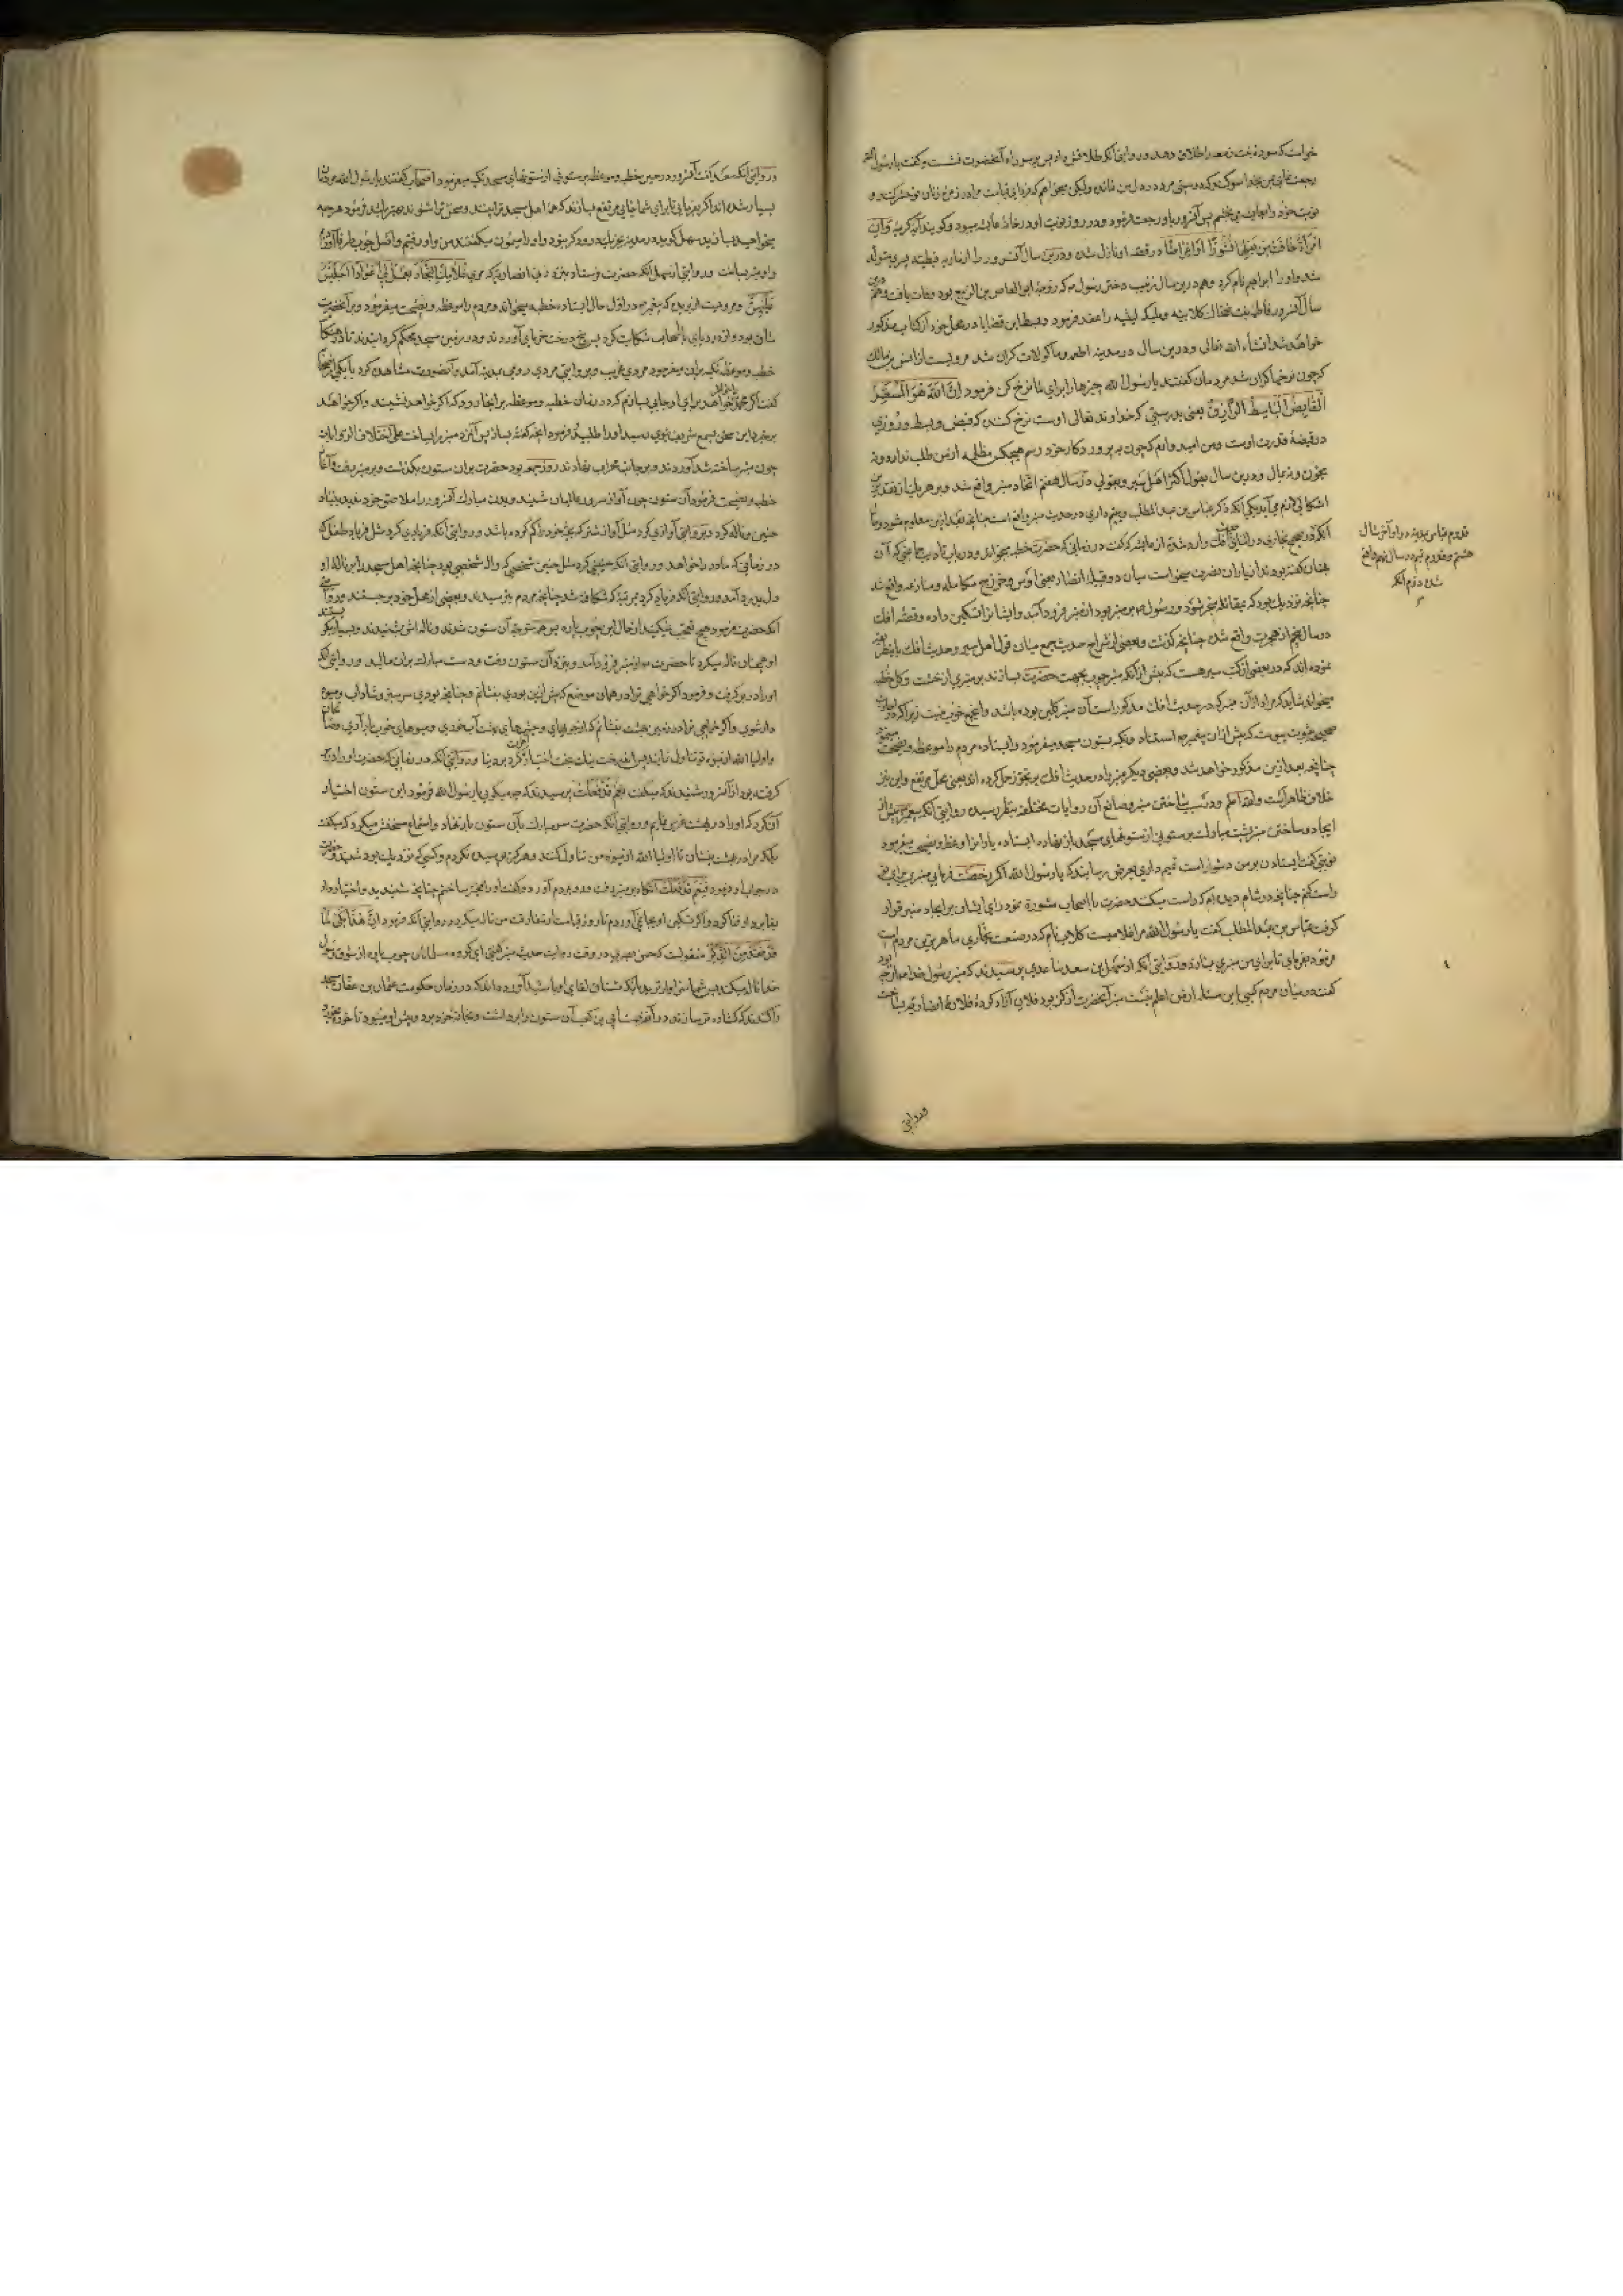 خواست که سوده بنت زمعه را طلاق دهد و در روایتی آنکه طلاقش داد پس بر سر راه آنحضرت نشست و گفت یا رسول الله
رجعت نمای بمن بخدا سوگند که دوستی مرد در دل من نمانده ولیکن میخواهم که فردای قیامت مرا در زمره زنان تو حشر کنند و
نوبت خود را بعایشه می بخشم پس آنسرور باو رجعت فرمود و در روز نوبت او در خانه عایشه میبود و گویند آیه کریمه وان
امرأة خافت من بعلها نشوزا او اعراضا در قصه او نازل شد و درین سال آنسرور را از ماریه قبطیه پسری متولد
شد و او را ابراهیم نام کرد و هم درین سال زینب دختر رسول که زوجه ابو العاص بن الربیع بود وفات یافت و هم درین
سال آنسرور فاطمه بنت ضحاک کلابیه و ملیکه لیثیه را عقد فرمود و بسط این قضایا در محل خود از کتاب مذکور
خواهد شد انشاء الله تعالی و درین سال در مدینه اطعمه و ماکولات گران شد مرویست از انس بن مالک
که چون نرخها گران شد مردمان گفتند یا رسول الله چیزها را برای ما نرخ کن فرمود ان الله هو المسعر
القابض الباسط الرازق یعنی بدرستی که خداوند تعالی اوست نرخ کننده که قبض و بسط و روزی
در قبضه قدرت اوست و من امید وارم که چون به پروردگار خود رسم هیچکس مظلمه از من طلب ندارد و نه
بخون و نه بمال و درین سال بقول اکثر اهل سیر و بقولی در سال هفتم اتخاذ منبر واقع شد و بر هر یک از تقدیرین
اشکالی لازم می آید یکی آنکه ذکر عباس بن عبد المطلب و تمیم داری در حدیث منبر واقع است چنانچه بعد ازین معلوم شود و
آنکه در صحیح بخاری در اثنای حدیث افک وارد شده از عایشه که گفت در زمانی که حضرت خطبه میخواند
چنان گفته بودند از یاران نصرت میخواست میان دو قبیله انصار یعنی اوس و خزرج مکالمه و منازعه واقع شد
چنانچه نزدیک بود که بمقاتله منجر شود و رسول بر منبر بود از منبر فرود آمد و ایشانرا تسکین داد و قصه افک
در سال پنجم از هجرت واقع شده چنانچه گذشت و بعضی از شراح حدیث جمع میان قول اهل سیر و حدیث افک
نموده اند که در بعضی از کتب سیر هست که پیش از آنکه منبر چوب بجهت حضرت بسازند بر منبری از خشت و گل خطبه
میخواند شاید که مراد از آن منبر که در حدیث افک مذکور است آن منبر گلین بوده باشد
صحیح بثبوت پیوست که پیش از آن پیغمبر استناد و تکیه بستون مسجد میفرمود و ایستاده مردم را موعظه و نصیحت
چنانچه بعد ازین مذکور خواهد شد و بعضی دیگر منبر را در حدیث افک بر تجوز حمل کرده اند یعنی محل مرتفع و این نیز
خلاف ظاهر است والله اعلم و در سبب ساختن منبر و صانع آن روایات مختلفه بنظر رسیده روایتی آنکه پیغمبر پیش از
ایجاد و ساختن منبر پشت مبارک بر ستونی از ستونهای مسجد باز نهاده ایستاده یارانرا وعظ و نصیحت میفرمود
نوبتی گفت ایستادن بر من دشوار است تمیم داری بعرض رسانید که یا رسول الله اگر رخصت فرمایی منبری برای تو
راست کنم چنانچه در شام دیده ام که راست میکنند حضرت با اصحاب مشورة نمود رای ایشان بر ایجاد منبر قرار
گرفت عباس بن عبد المطلب گفت یا رسول الله مرا غلامیست کلاب نام که در صنعت نجاری ماهرترین مردم است
فرمود بفرمای تا برای من منبری بسازد و در روایتی آنکه از سهل بن سعد ساعدی پرسیدند که منبر رسول خدا از چه بود
گفت در میان مردم کسی این مسئله از من اعلم نیست منبر آنحضرت از گز بود فلان آزاد کرده فلانه انصاریه بساخت
قدوم عباس بمدینه در اواخر سال
هشتم و قدوم تمیم در سال نهم واقع
شده دوم آنکه
وروایتی
و روایتی آنکه گفت آنسرور در حین خطبه و موعظه بر ستونی از ستونهای مسجد تکیه میفرمود اصحاب گفتند یا رسول الله مردمان
بسیار شده اند اگر بفرمایی تا برای شما جایی مرتفع بسازند که همه اهل مسجد ترا بینند و سخن ترا شنوند بهتر باشد فرمود هر چه
میخواهید بسازید سهل گوید در مدینه
و او منبر بساخت و در روایتی از سهل آنکه حضرت فرستاد بنزد زنی انصاریه که مری غلامک النجار یعمل لی اعوادا اجلس
علیهن و مرویست از بریده که پیغمبر در اول حال ایستاده خطبه میخواند و مردم را موعظه و نصیحت میفرمود
شاق بود و از درد پای باصحاب شکایت کرد پس بیخ درخت خرمایی آوردند و در زمین مسجد محکم گردانیدند تا در هنگام
خطبه و موعظه تکیه بر آن میفرمود مردی غریب و بروایتی مردی رومی بمدینه آمد و آنصورت مشاهده کرد با یکی از اصحاب
گفت اگر محمد خواهد برای او جایی بسازم که در زمان خطبه و موعظه بر آنجا رود که اگر خواهد نشیند و اگر خواهد
برخیزد این سخن بسمع شریف نبوی رسید او را طلبید و فرمود آنچه گفته بساز پس آنمرد منبر را بساخت علی اختلاف الروایات
چون منبر ساخته شد آوردند و بر جانب محراب نهادند روز جمعه بود حضرت بر آن ستون بگذشت و بر منبر رفت و آغاز
خطبه و نصیحت فرمود آن ستون چون آواز سرور عالمیان شنید و بدن مبارک آنسرور را ملاصق خود ندید بنیاد
حنین و ناله کرد و بروایتی آوازی کرد مثل آواز شتر که بچه خود را گم کرده باشد و در روایتی آنکه فریادی کرد مثل فریاد طفل که
در زمانی که مادر را خواهد و در روایتی آنکه حنینی کرد مثل حنین شخصی که واله شخصی بود چنانچه اهل مسجد را بر ناله او
دل بدرد آمد و در روایتی آنکه فریاد کرد بمرتبه که شکافته شد چنانچه مردم بترسیدند و بعضی از محل خود برجستند
آنکه حضرت فرمود هیچ تعجب نمیکنید از حال این چوب پاره مردم متوجه آن ستون شدند و ناله اش بشنیدند و بسیار بگریستند
او همچنان ناله میکرد تا حضرت از منبر فرود آمد و بنزد آن ستون رفت و دست مبارک بر آن مالید و در روایتی آنکه
او را در بر گرفت و فرمود اگر خواهی ترا در همان موضع که پیش ازین بودی بنشانم و چنانچه بودی سرسبز و شاداب و میوه
دار شوی و اگر خواهی ترا در زمین بهشت بنشانم که از جویهای و چشمهای بهشت آب خوری و میوهای خوب بار آوری
و اولیاء الله از میوه تو تناول نمایند پس آن درخت نیک بخت اختیار آخرت کرد بر دنیا و در روایتی آنکه در زمانی که حضرت او را در بر
گرفته بود از آنسرور شنیدند که میگفت نعم قد فعلت پرسیدند که چه میگویی یا رسول الله فرمود این ستون اختیار
آن کرد که او را در بهشت غرس نمایم و در روایتی آنکه حضرت سر مبارک بآن ستون باز نهاد و استماع سخنش میکرد که میگفت
بلکه مرا در بهشت بنشان تا اولیاء الله از میوه من تناول کنند و هرگز نپوسیده نگردم و کسی که نزدیک بود شنید
در جواب او فرمود نعم قد فعلت آنگاه بر منبر رفت و رو بمردم آورد و گفت او را مخیر ساختم چنانچه شنیدید و اختیار دار
بقا بر دار فنا کرد و اگر تسکین او بجای نمی آوردم تا روز قیامت از مفارقت من ناله میکرد و در روایتی آنکه فرمود ان هذا بکی لما
فقد من الذکر منقولست که حسن بصری در وقت روایت حدیث منبر گفتی ای گروه مسلمانان چوب پاره از شوق رسول
خدا ناله میکند پس شما سزاوارترید بآنکه مشتاق لقای او باشید آورده اند که در زمان حکومت عثمان بن عفان مسجد
را کندند که گشاده تر سازند و در آنوقت ابی بن کعب آن ستون را برداشت و بخانه خود برد و پیش او میبود تا خورده